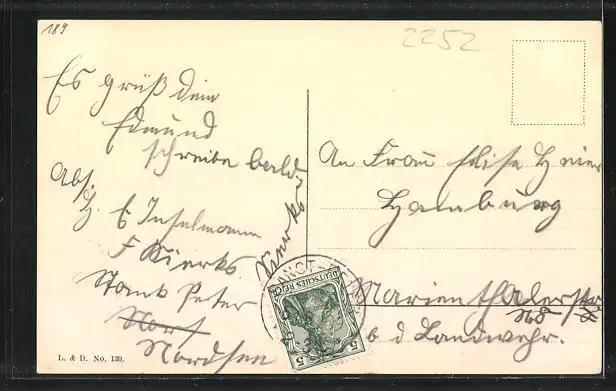 189
2252
Es grüß dein
Edmund
schreibe bald
Abs.
H. E Inselmann
F Kierks
Sankt Peter
Nordsen
An Frau Elise H
Hamburg
Marienthalerstr
b d Landwehr.
DEUTSCHES REICH
5 5
L. & D. No. 139.